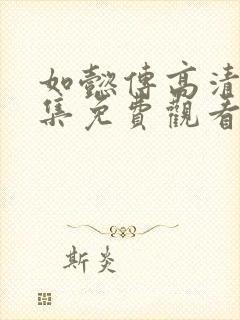 如懿傳高清
集免費觀看
斯炎